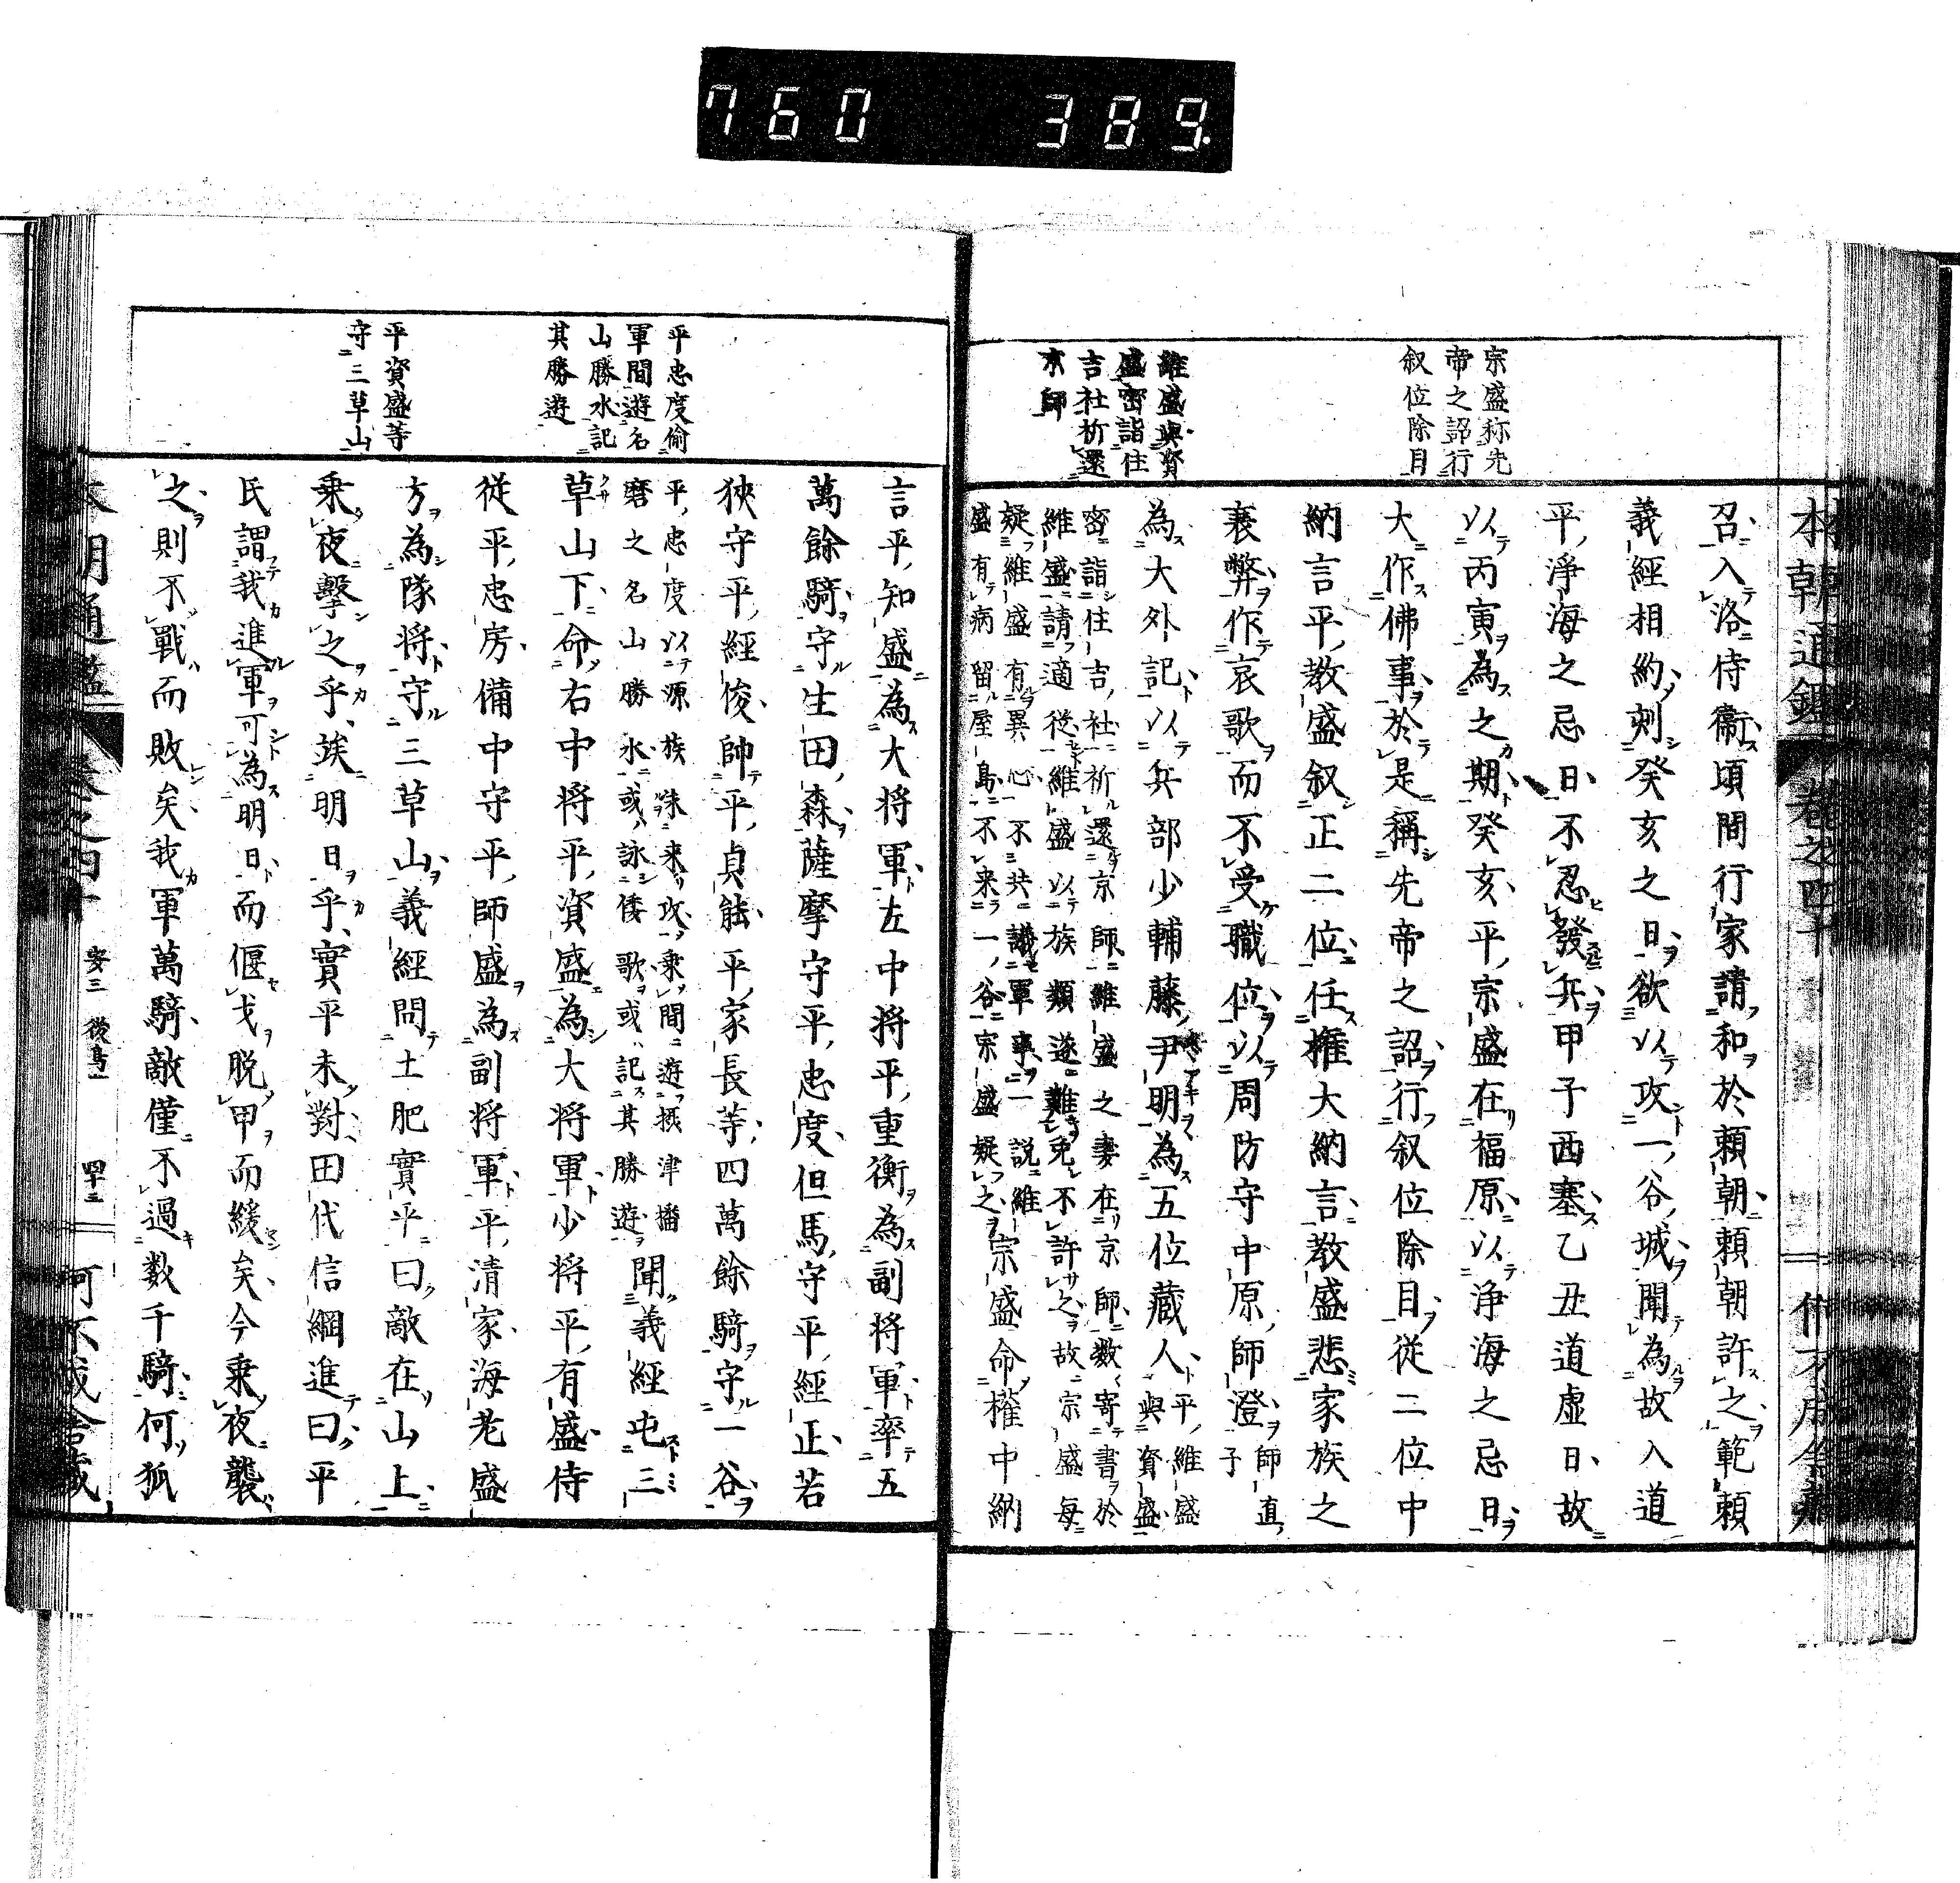 760 389.
宗盛称先
帝之詔行
叙位除目
維盛與資
盛密詣住
吉社祈還
京師
本朝通鑑 卷之四十
召入洛侍衞頃間行家請和於頼朝頼朝許之範頼
義經相約刻癸亥之日欲以攻一谷城聞為故入道
平淨海之忌日不忍發兵甲子西塞乙丑道虚日故
以丙寅為之期癸亥平宗盛在福原以淨海之忌日
大作佛事於是稱先帝之詔行叙位除目從二位中
納言平教盛叙正二位任權大納言教盛悲家族之
衰弊作哀歌而不受職位以周防守中原師澄師直
子
為大外記以兵部少輔藤尹明為五位藏人平維盛
與資盛
密詣住吉社祈還京師維盛之妻在京師数寄書於
維盛請適從維盛以族類遂難免不許之故宗盛毎
疑維盛有異心不共議軍事一説維
盛有病留屋島不来一谷宗盛疑之宗盛命權中納
平忠度偷
軍間遊名
山勝水記
其勝遊
平資盛等
守三草山
言平知盛為大将軍左中将平重衡為副将軍率五
萬餘騎守生田森薩摩守平忠度但馬守平經正若
狹守平經俊帥平貞能平家長等四萬餘騎守一谷
平忠度以源族未来攻乗間遊摂津播
磨之名山勝水或詠倭歌或記其勝遊聞義經屯三
草山下命右中将平資盛為大将軍少将平有盛侍
從平忠房備中守平師盛為副将軍平清家海老盛
方為隊将守三草山義經問土肥實平曰敵在山上
乗夜擊之乎竢明日乎實平未對田代信綱進曰平
氏謂我進軍可為明日而偃戈脱甲而緩矣今乗夜襲
之則不戰而敗矣我軍萬騎敵僅不過数千騎何狐
安三 後鳥一
四十三